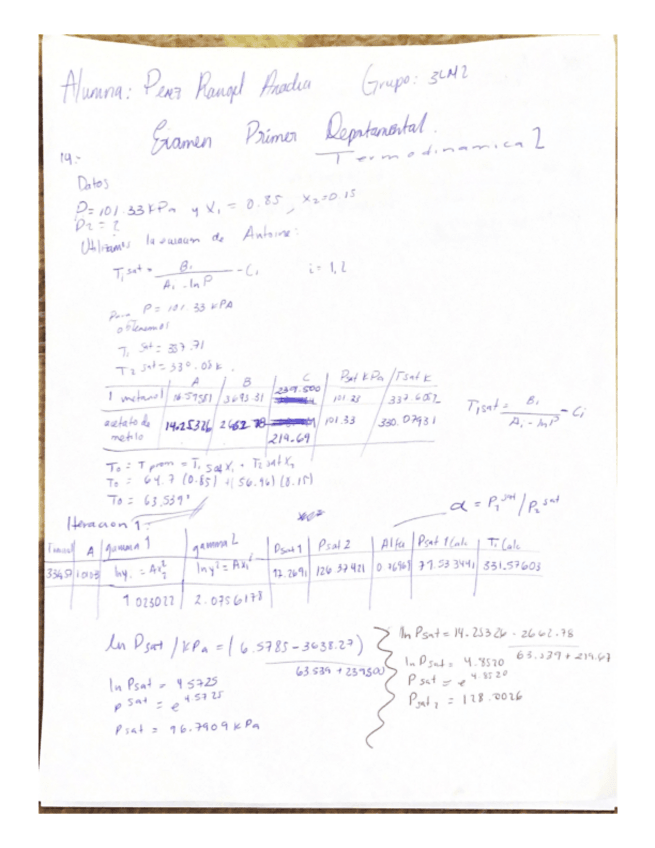 Alumna: Perez Rangel Aradia Grupo: 3LM2
Examen Primer Depatamental.
Termodinamica 2
19.-
Datos
P=101.33 kPa y X₁ = 0.85, X₂=0.15
P₂ = ?
Utilizamos la ecuacion de Antoine:
T₁ sat = B₁ / (A₁ - ln P) - C₁ i=1,2
Para P = 101.33 kPA
obtenemos
T₁ sat = 337.71
T₂ sat = 330.08 k.
A B C Psat kPa Tsat k
1 metanol 16.57851 3638.27 239.500 101.33 337.6052
acetato de metilo 14.25326 2662.78 219.69 101.33 330.07931
Tisat = Bi / (Ai - ln P) - Ci
To = T prom = T₁ sat X₁ + T₂ sat X₂
To = 64.7 (0.85) + (56.96) (0.15)
To = 63.539°
α = P₁ sat / P₂ sat
Iteracion 1:
A gamma 1 gamma 2 Psat 1 Psat 2 Alfa Psat 1 Calc T₁ Calc
lnγ₁ = Ax₂² lnγ² = Ax₁²
126.37421 331.57603
1.023022 2.0756178
ln Psat / kPa = (6.5785 - 3638.27) / 63.539 + 239.500
ln Psat = 4.5725
P sat = e^4.5725
Psat = 96.7909 kPa
ln Psat = 14.25326 - 2662.78 / 63.539 + 219.69
ln Psat = 4.8520
P sat = e^4.8520
Psat₂ = 128.0026